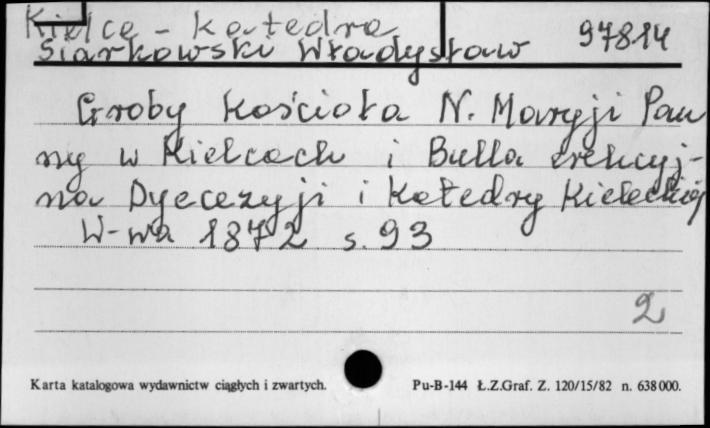 Kielce - katedra
Siarkowski Władysław 97814
Groby Kościoła N. Maryji Pan
ny w Kielcach i Bulla erekcyj-
na Dyecezyji i Katedry Kieleckiej
W-wa 1872 s. 93
2
Karta katalogowa wydawnictw ciągłych i zwartych. Pu-B-144 Ł.Z.Graf. Z. 120/15/82 n. 638000.